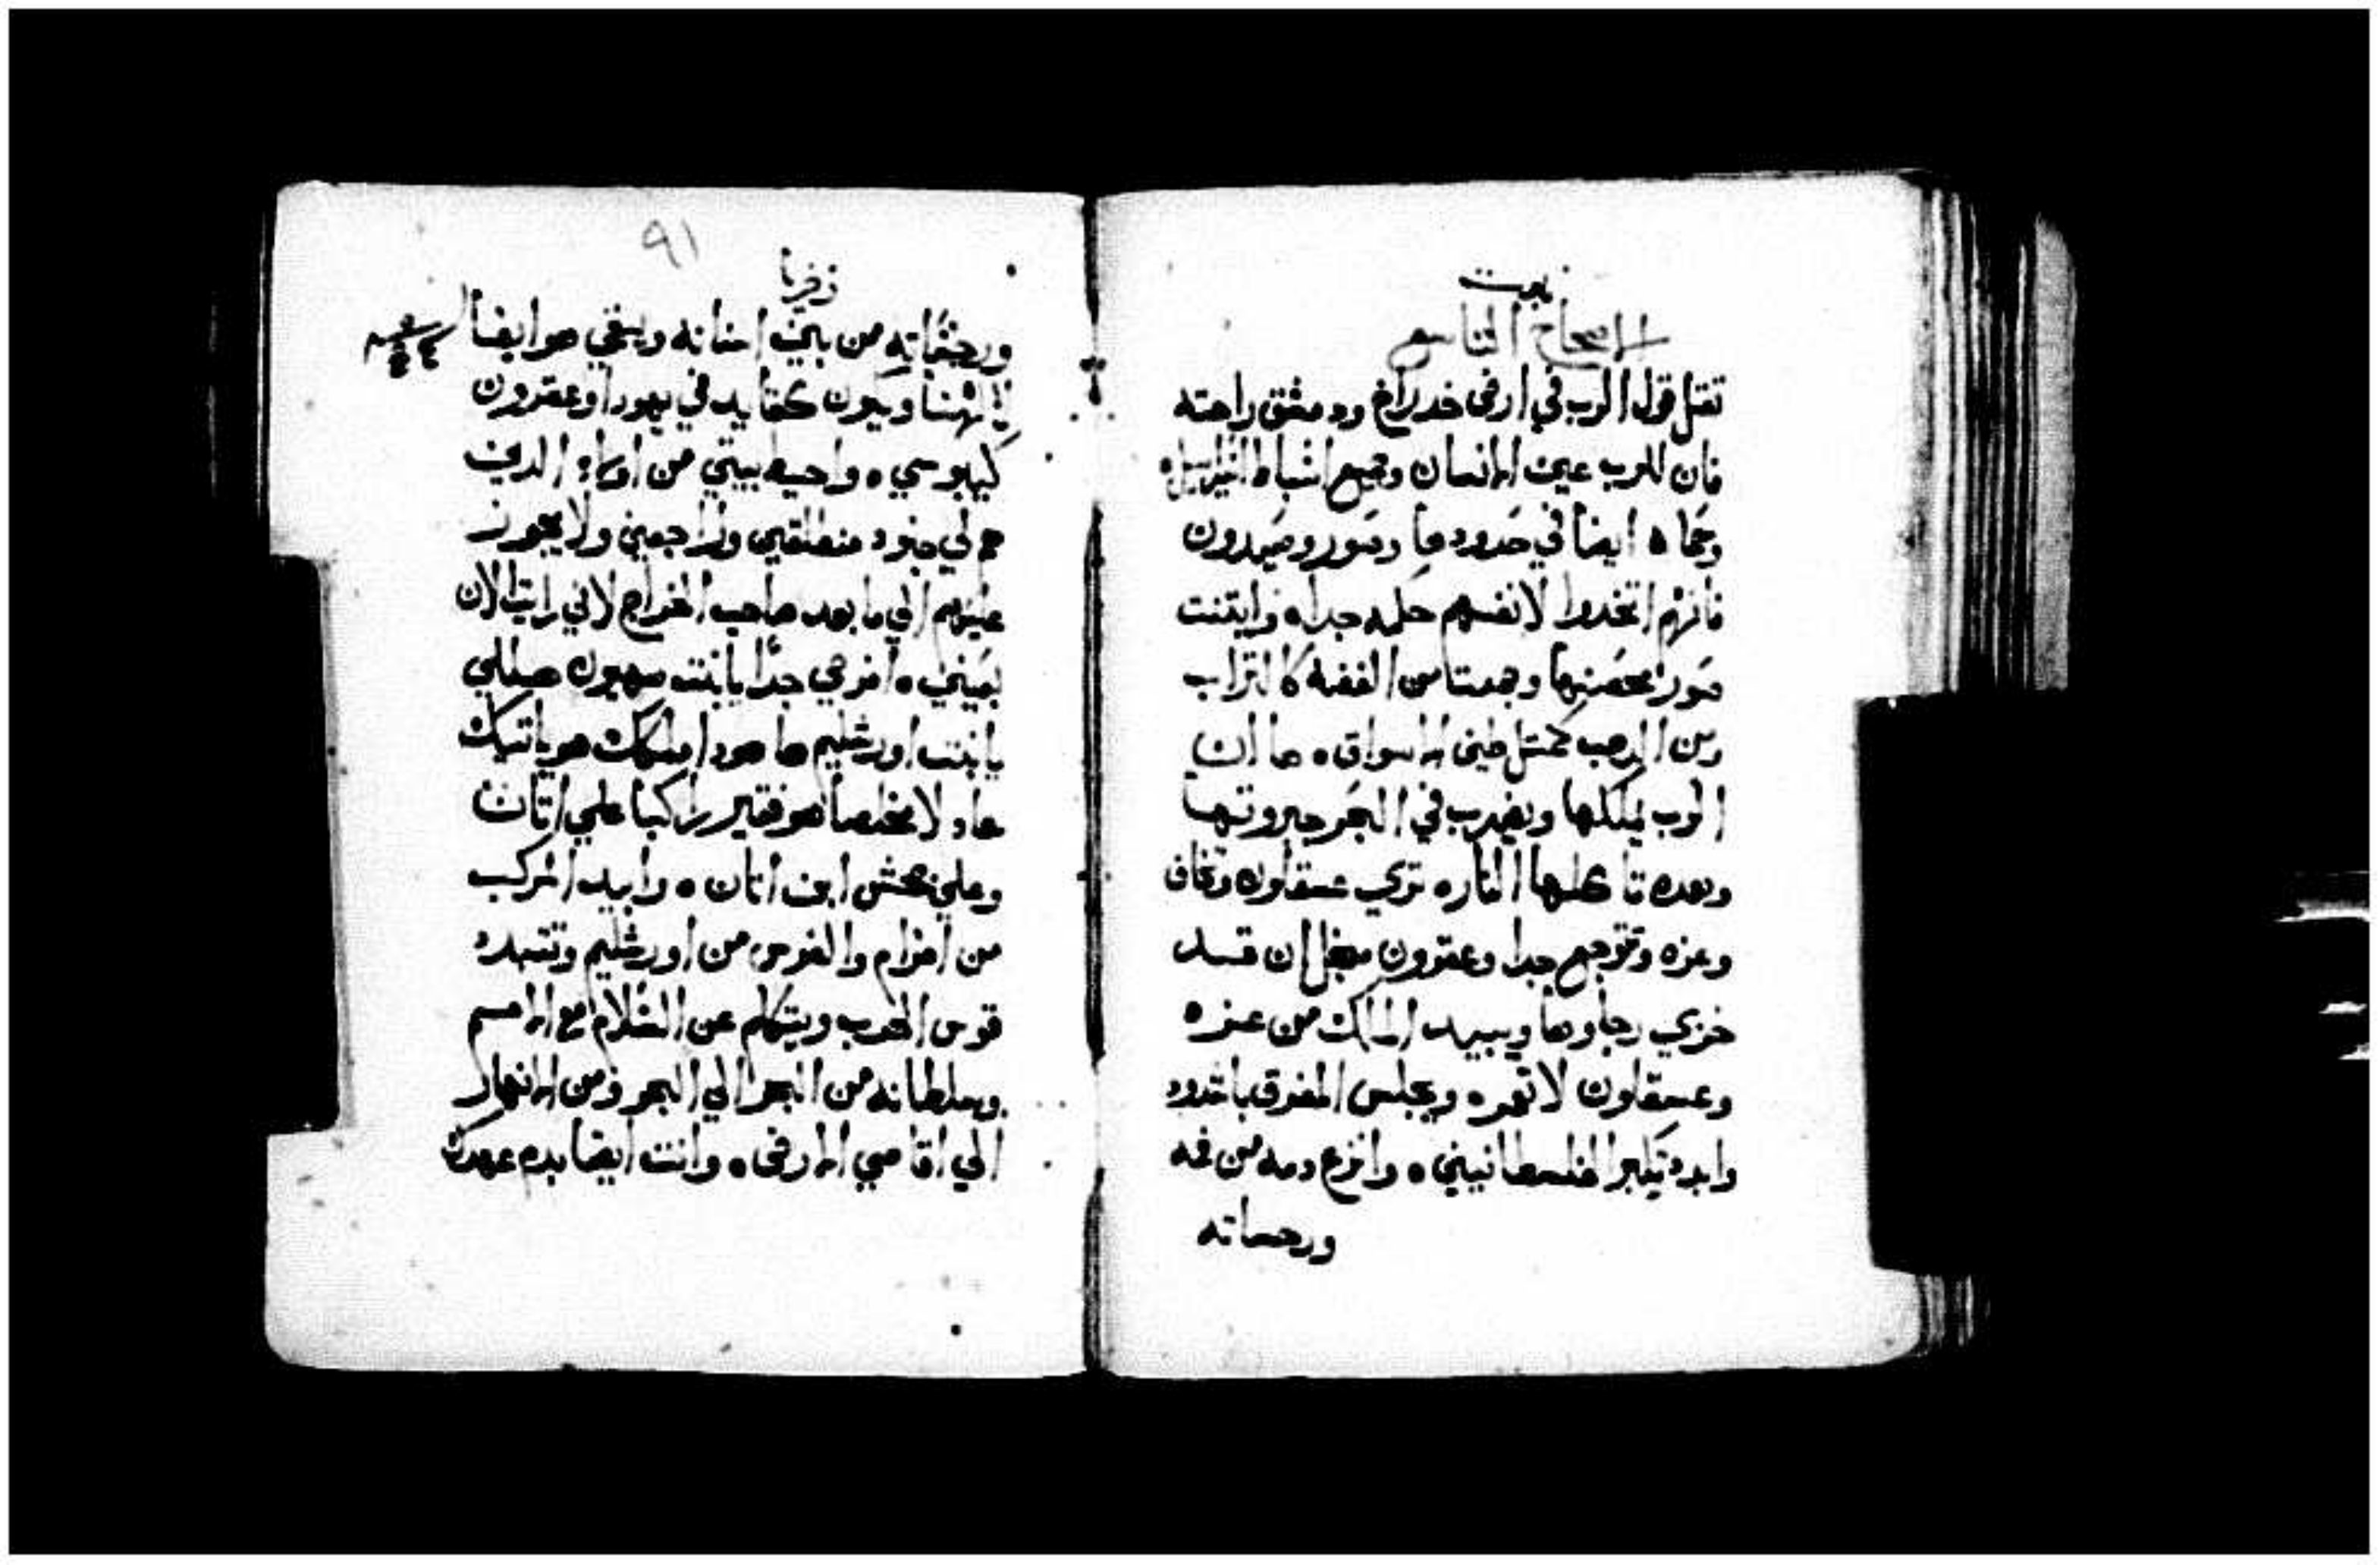 نبوت
الاصحاح التاسع
تقل قول الرب في ارض خدراخ ودمشق راحته
فان للرب عين الانسان وجميع اسباط اسراييل
وحماه ايضا في حدودها وصور وصيدون
فانهم اتخدوا لانفسهم حكمه جدا ه وابتنت
صور محصنها وجمعتا من الفضه كالتراب
ومن الدهب كمتل طين الاسواق ه ها ان
الرب يملكها ويضرب في البحر جبروتها
وهده تاكلها النار ه تري عسقلون وتخاف
وعزه وتتوجع جدا وعقرون من اجل ان قد
خزي رجاوها ويبيد الملك من عزه
وعسقلون لا تعمر ه ويجلس المفرق باشدود
وابدد تكبر الفلسطانيين ه وانزع دمه من فمه
ورجساته
٩١
زخريا
ورجساته من بين اسنانه ويبقي هو ايضا
لالهنا ويكون كقايد في يهودا وعقرون
كيبوسي ه واحيط بيتي من اولاء الدين
هم لي جنود منطلقين وراجعين ولا يجوز
عليهم الي ما بعد صاحب الخراج لاني رايت الان
بعيني ه افرحي جدا يا بنت صهيون هللي
يا بنت اورشليم ها هودا ملكك هو ياتيك
عادلا مخلصا هو فقير راكبا علي اتان
وعلي جحش ابن اتان ه وابيد المركب
من افرام والفرس من اورشليم وتتبدد
قوس الحرب ويتكلم عن السلام مع الامم
وسلطانه من البحر الي البحر ومن الانهار
الي اقاصي الارض ه وانت ايضا بدم عهدك